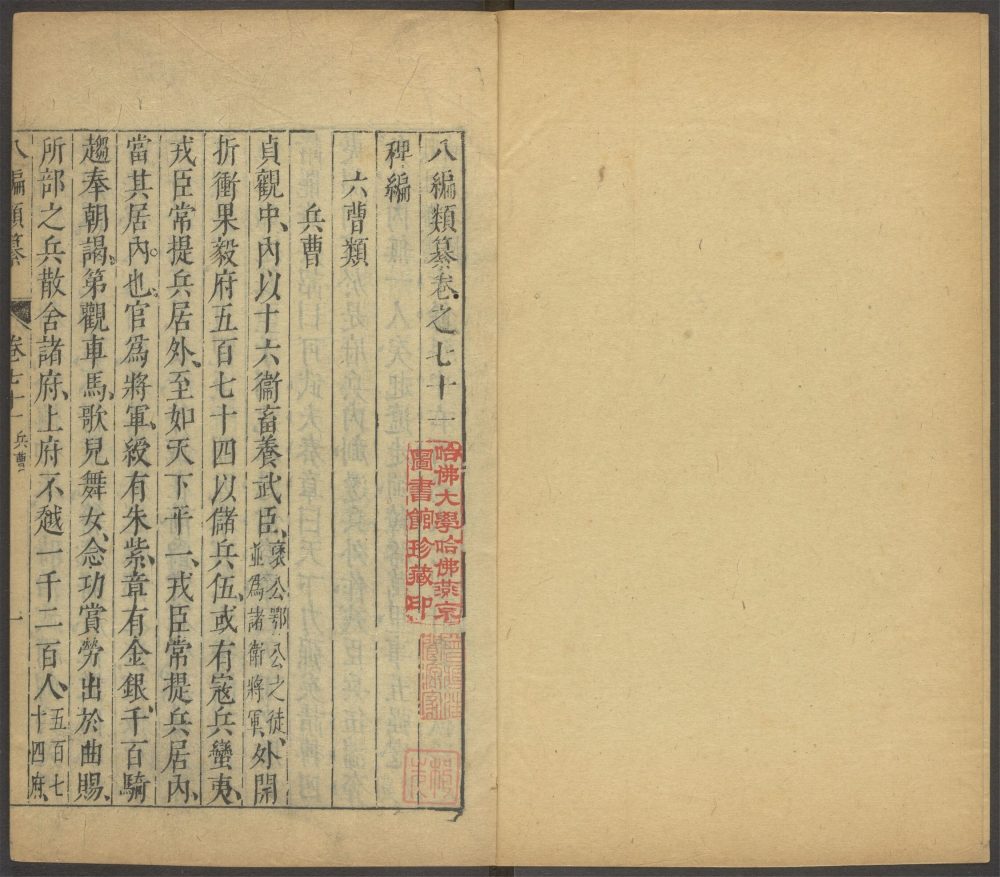 八編類纂卷之七十一
稗編
六曹類
兵曹
貞觀中、內以十六衞畜養武臣、褒公鄂公之徒、並爲諸衛將軍、外開
折衝果毅府五百七十四以儲兵伍、或有寇兵蠻夷、
戎臣常提兵居外、至如天下平一、戎臣常提兵居內、
當其居內也、官爲將軍、綬有朱紫、章有金銀、千百騎
趨奉朝謁、第觀車馬、歌兒舞女、念功賞勞出於曲賜、
所部之兵散舍諸府、上府不越一千二百人、五百七十四府、
八編類纂 卷七十一 兵曹 一
哈佛大學哈佛燕京
圖書館珍藏印